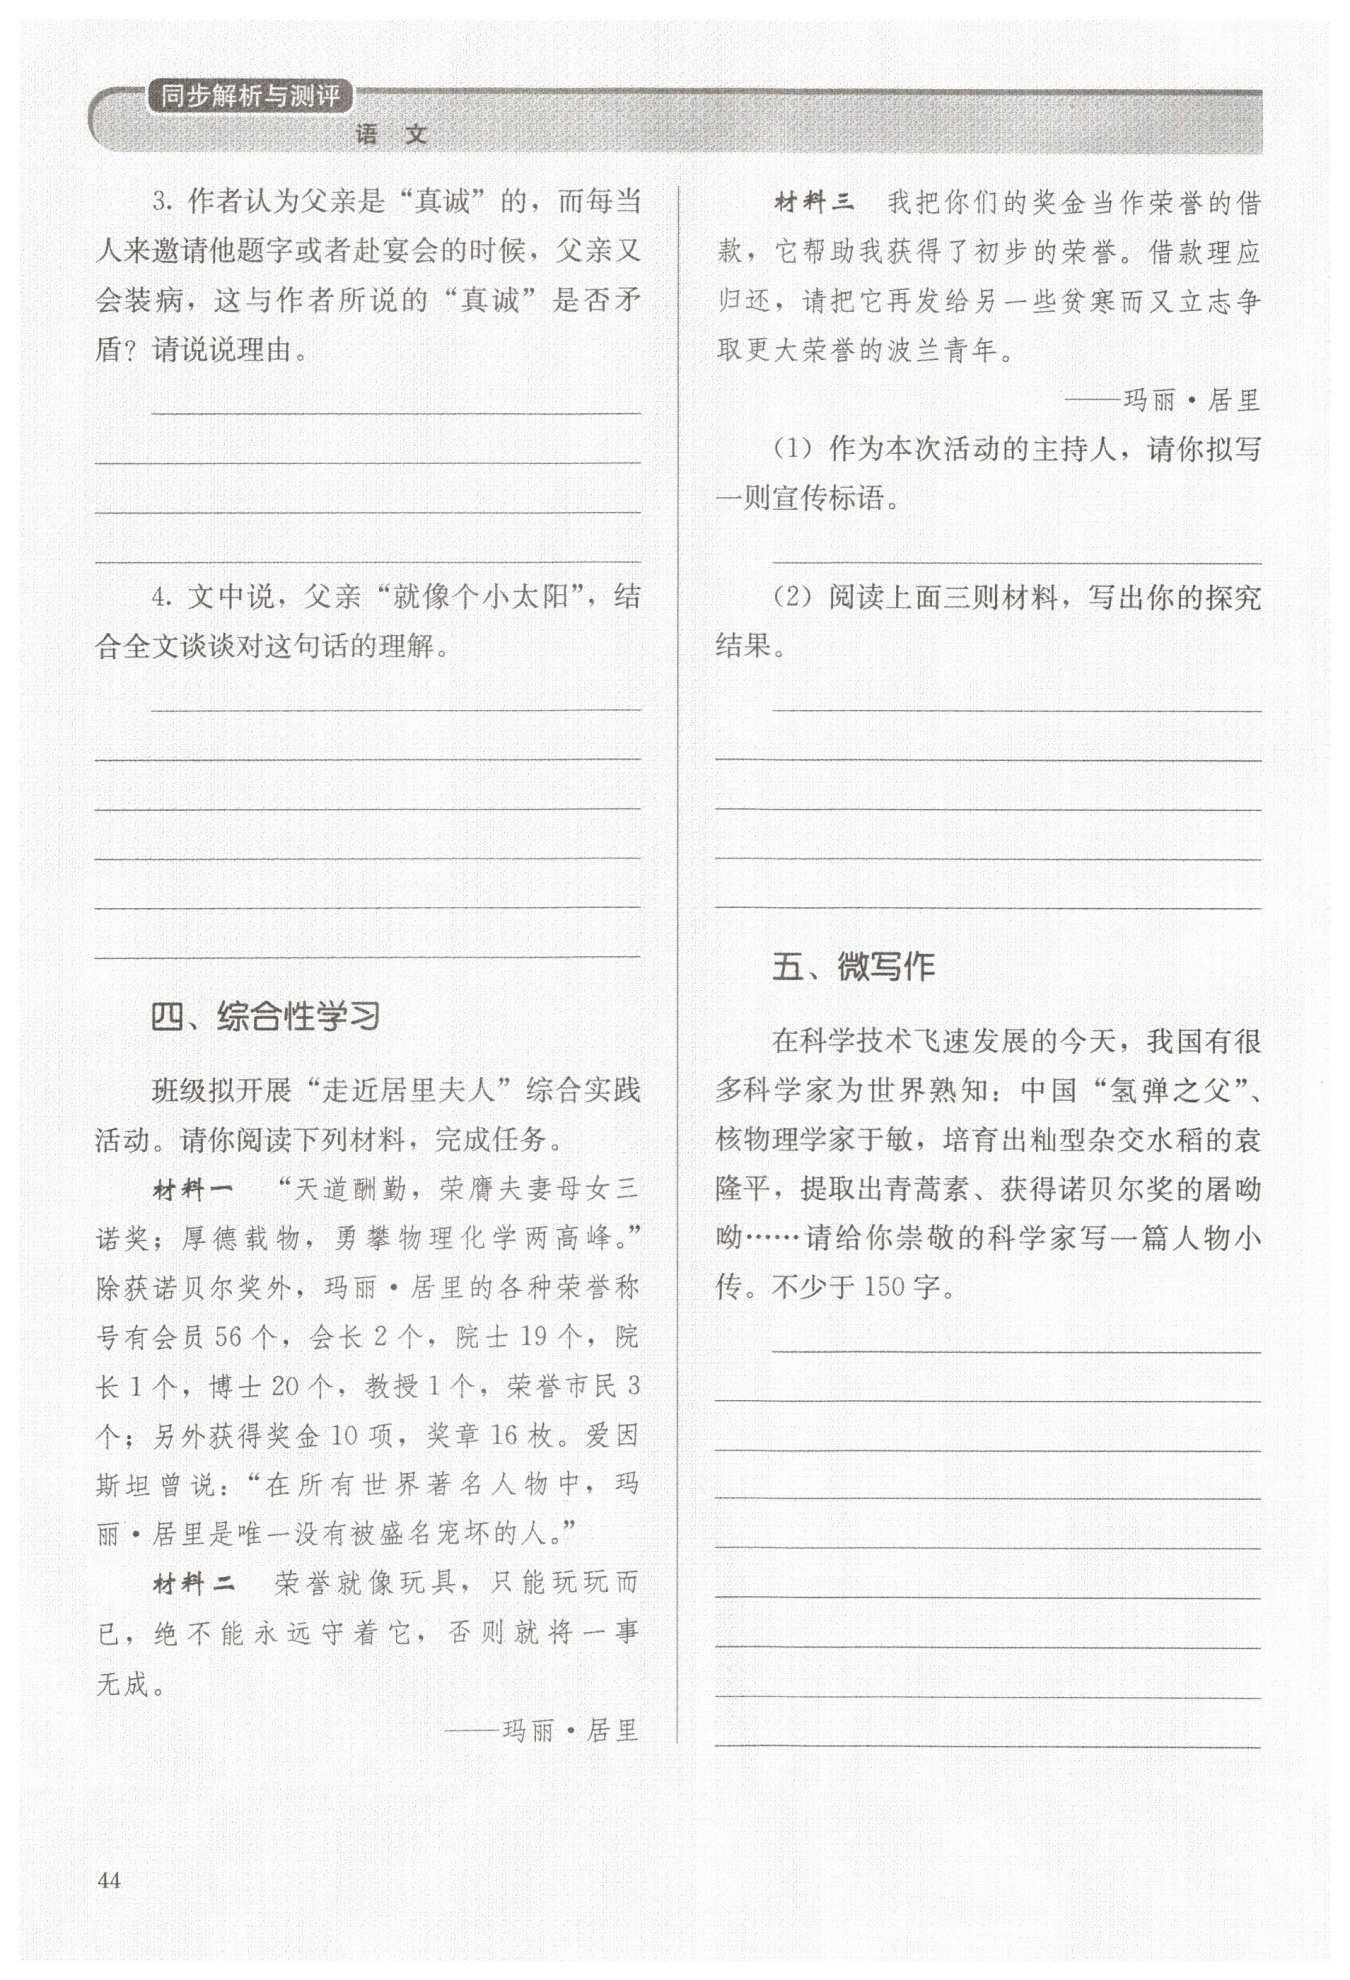 同步解析与测评
语 文
3. 作者认为父亲是“真诚”的，而每当
人来邀请他题字或者赴宴会的时候，父亲又
会装病，这与作者所说的“真诚”是否矛
盾？请说说理由。
4. 文中说，父亲“就像个小太阳”，结
合全文谈谈对这句话的理解。
四、综合性学习
班级拟开展“走近居里夫人”综合实践
活动。请你阅读下列材料，完成任务。
材料一 “天道酬勤，荣膺夫妻母女三
诺奖；厚德载物，勇攀物理化学两高峰。”
除获诺贝尔奖外，玛丽·居里的各种荣誉称
号有会员 56 个，会长 2 个，院士 19 个，院
长 1 个，博士 20 个，教授 1 个，荣誉市民 3
个；另外获得奖金 10 项，奖章 16 枚。爱因
斯坦曾说：“在所有世界著名人物中，玛
丽·居里是唯一没有被盛名宠坏的人。”
材料二 荣誉就像玩具，只能玩玩而
已，绝不能永远守着它，否则就将一事
无成。
——玛丽·居里
材料三 我把你们的奖金当作荣誉的借
款，它帮助我获得了初步的荣誉。借款理应
归还，请把它再发给另一些贫寒而又立志争
取更大荣誉的波兰青年。
——玛丽·居里
（1）作为本次活动的主持人，请你拟写
一则宣传标语。
（2）阅读上面三则材料，写出你的探究
结果。
五、微写作
在科学技术飞速发展的今天，我国有很
多科学家为世界熟知：中国“氢弹之父”、
核物理学家于敏，培育出籼型杂交水稻的袁
隆平，提取出青蒿素、获得诺贝尔奖的屠呦
呦……请给你崇敬的科学家写一篇人物小
传。不少于 150 字。
44